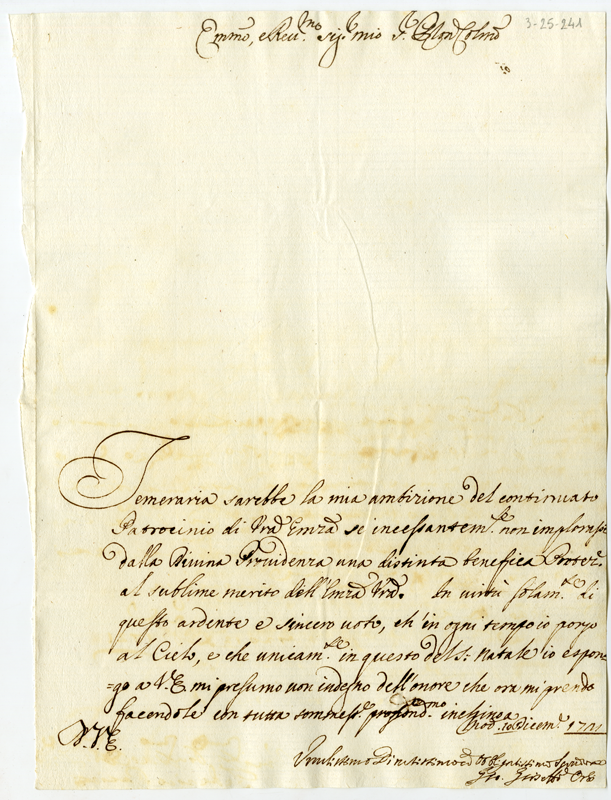 Emmo, e Reumo. sigr. mio sr. Pron Colmo
3-25-241
Temeraria sarebbe la mia ambizione del continuato
Patrocinio di Vra Emza se incessantemte. non implorassi
dalla Divina Providenza una distinta benefica Protez.
al sublime merito dell'Emza Vra. In virtù solamte. di
questo ardente e sincero voto, ch'in ogni tempo io porgo
al Cielo, e che unicamte. in questo del S. Natale io espon
=go a V.E. mi presumo non indegno dell'onore che ora mi prendo
facendole con tutta sommess. profondmo. inchino
Mod. 10 dicem.
V.V.E.
Umilissimo Divotissimo ed Obblmo